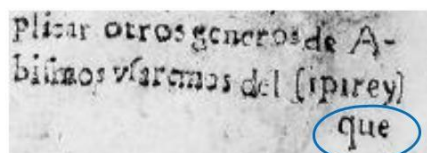 plicar otros generos de A-
bismos vsaremos del [ipirey]
que